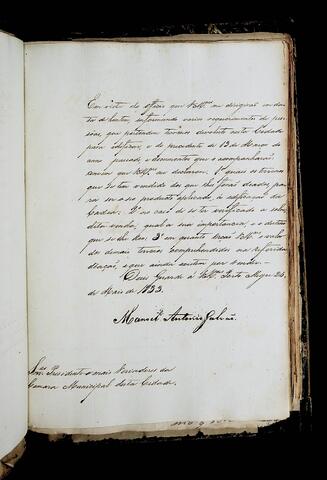 Em vista do officio que VMces me dirigirão em da-
ta de hontem, informando varios requerimentos de pes-
soas, que pretendem terrenos devolutos nesta Cidade
para edificar, e do precedente de 13 de Março do
anno passado, e documentos que o acompanharão:
preciso que VMces me declarem. 1º quaes os terrenos
que se tem vendido dos que lhes forão doados, pa-
ra ser o seo producto applicado à edificação da
Cadeia. 2º no caso de se ter verificado a sobre-
dita venda, qual a sua importancia, e o destino
que se lhe deo. 3º em quanto orção VMces o valor
dos demais terrenos comprehendidos na referida
doação, e que ainda existem por vender.
Deos Guarde a VMces Porto Alegre 24
de Maio de 1833.
Manoel Antonio Galvão.
Snres Presidente e mais Vereadores da
Camara Municipal desta Cidade.